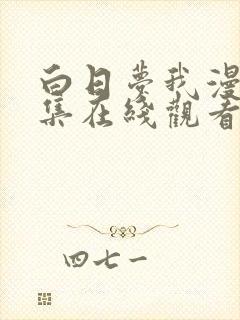 白日梦我漫
集在线觀看
四七一